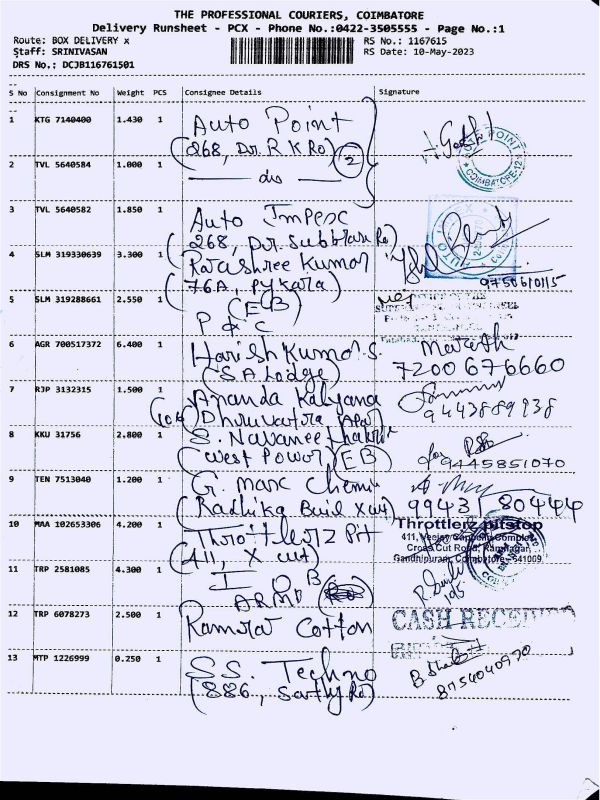 THE PROFESSIONAL COURIERS, COIMBATORE
Delivery Runsheet - PCX - Phone No.:0422-3505555 - Page No.:1
Route: BOX DELIVERY x RS No.: 1167615
Staff: SRINIVASAN RS Date: 10-May-2023
DRS No.: DCJB116761501
S No Consignment No Weight PCS Consignee Details Signature
1 KTG 7140400 1.430 1 Auto Point
(268, Dr. R K Ro) 2
POINT
COIMBATORE-12
2 TVL 5640584 1.000 1 — do —
3 TVL 5640582 1.850 1 Auto Impex
(268, Dr. Subbran Ro)
4 SLM 319330639 3.300 1 Rajashree Kumar
(76A, Pykara)
9750610115
5 SLM 319288661 2.550 1 (EB)
P & C
6 AGR 700517372 6.400 1 Harish Kumar. S.
(S A Lodge)
7200676660
7 RJP 3132315 1.500 1 Ananda Kalyana
(104 Dhruvatra (Apar)
9443889938
8 KKU 31756 2.800 1 S. Navaneethakri
(West Power) (EB)
for
9445851070
9 TEN 7513040 1.200 1 G. Marc Chemi
(Radhika Buil X cut)
9943 80444
10 MAA 102653306 4.200 1 Throttlerz Pit
(411, X cut)
Throttlerz pitstop
411, Veejay Complex,
Cross Cut Road, Ramnagar,
Gandhipuram, Coimbatore-641009.
11 TRP 2581085 4.300 1 I O B
ARMB
12 TRP 6078273 2.500 1 Ramraj Cotton
CASH RECEIVED
13 MTP 1226999 0.250 1 SS. Techno
(886, Sathy Ro)
8754040970